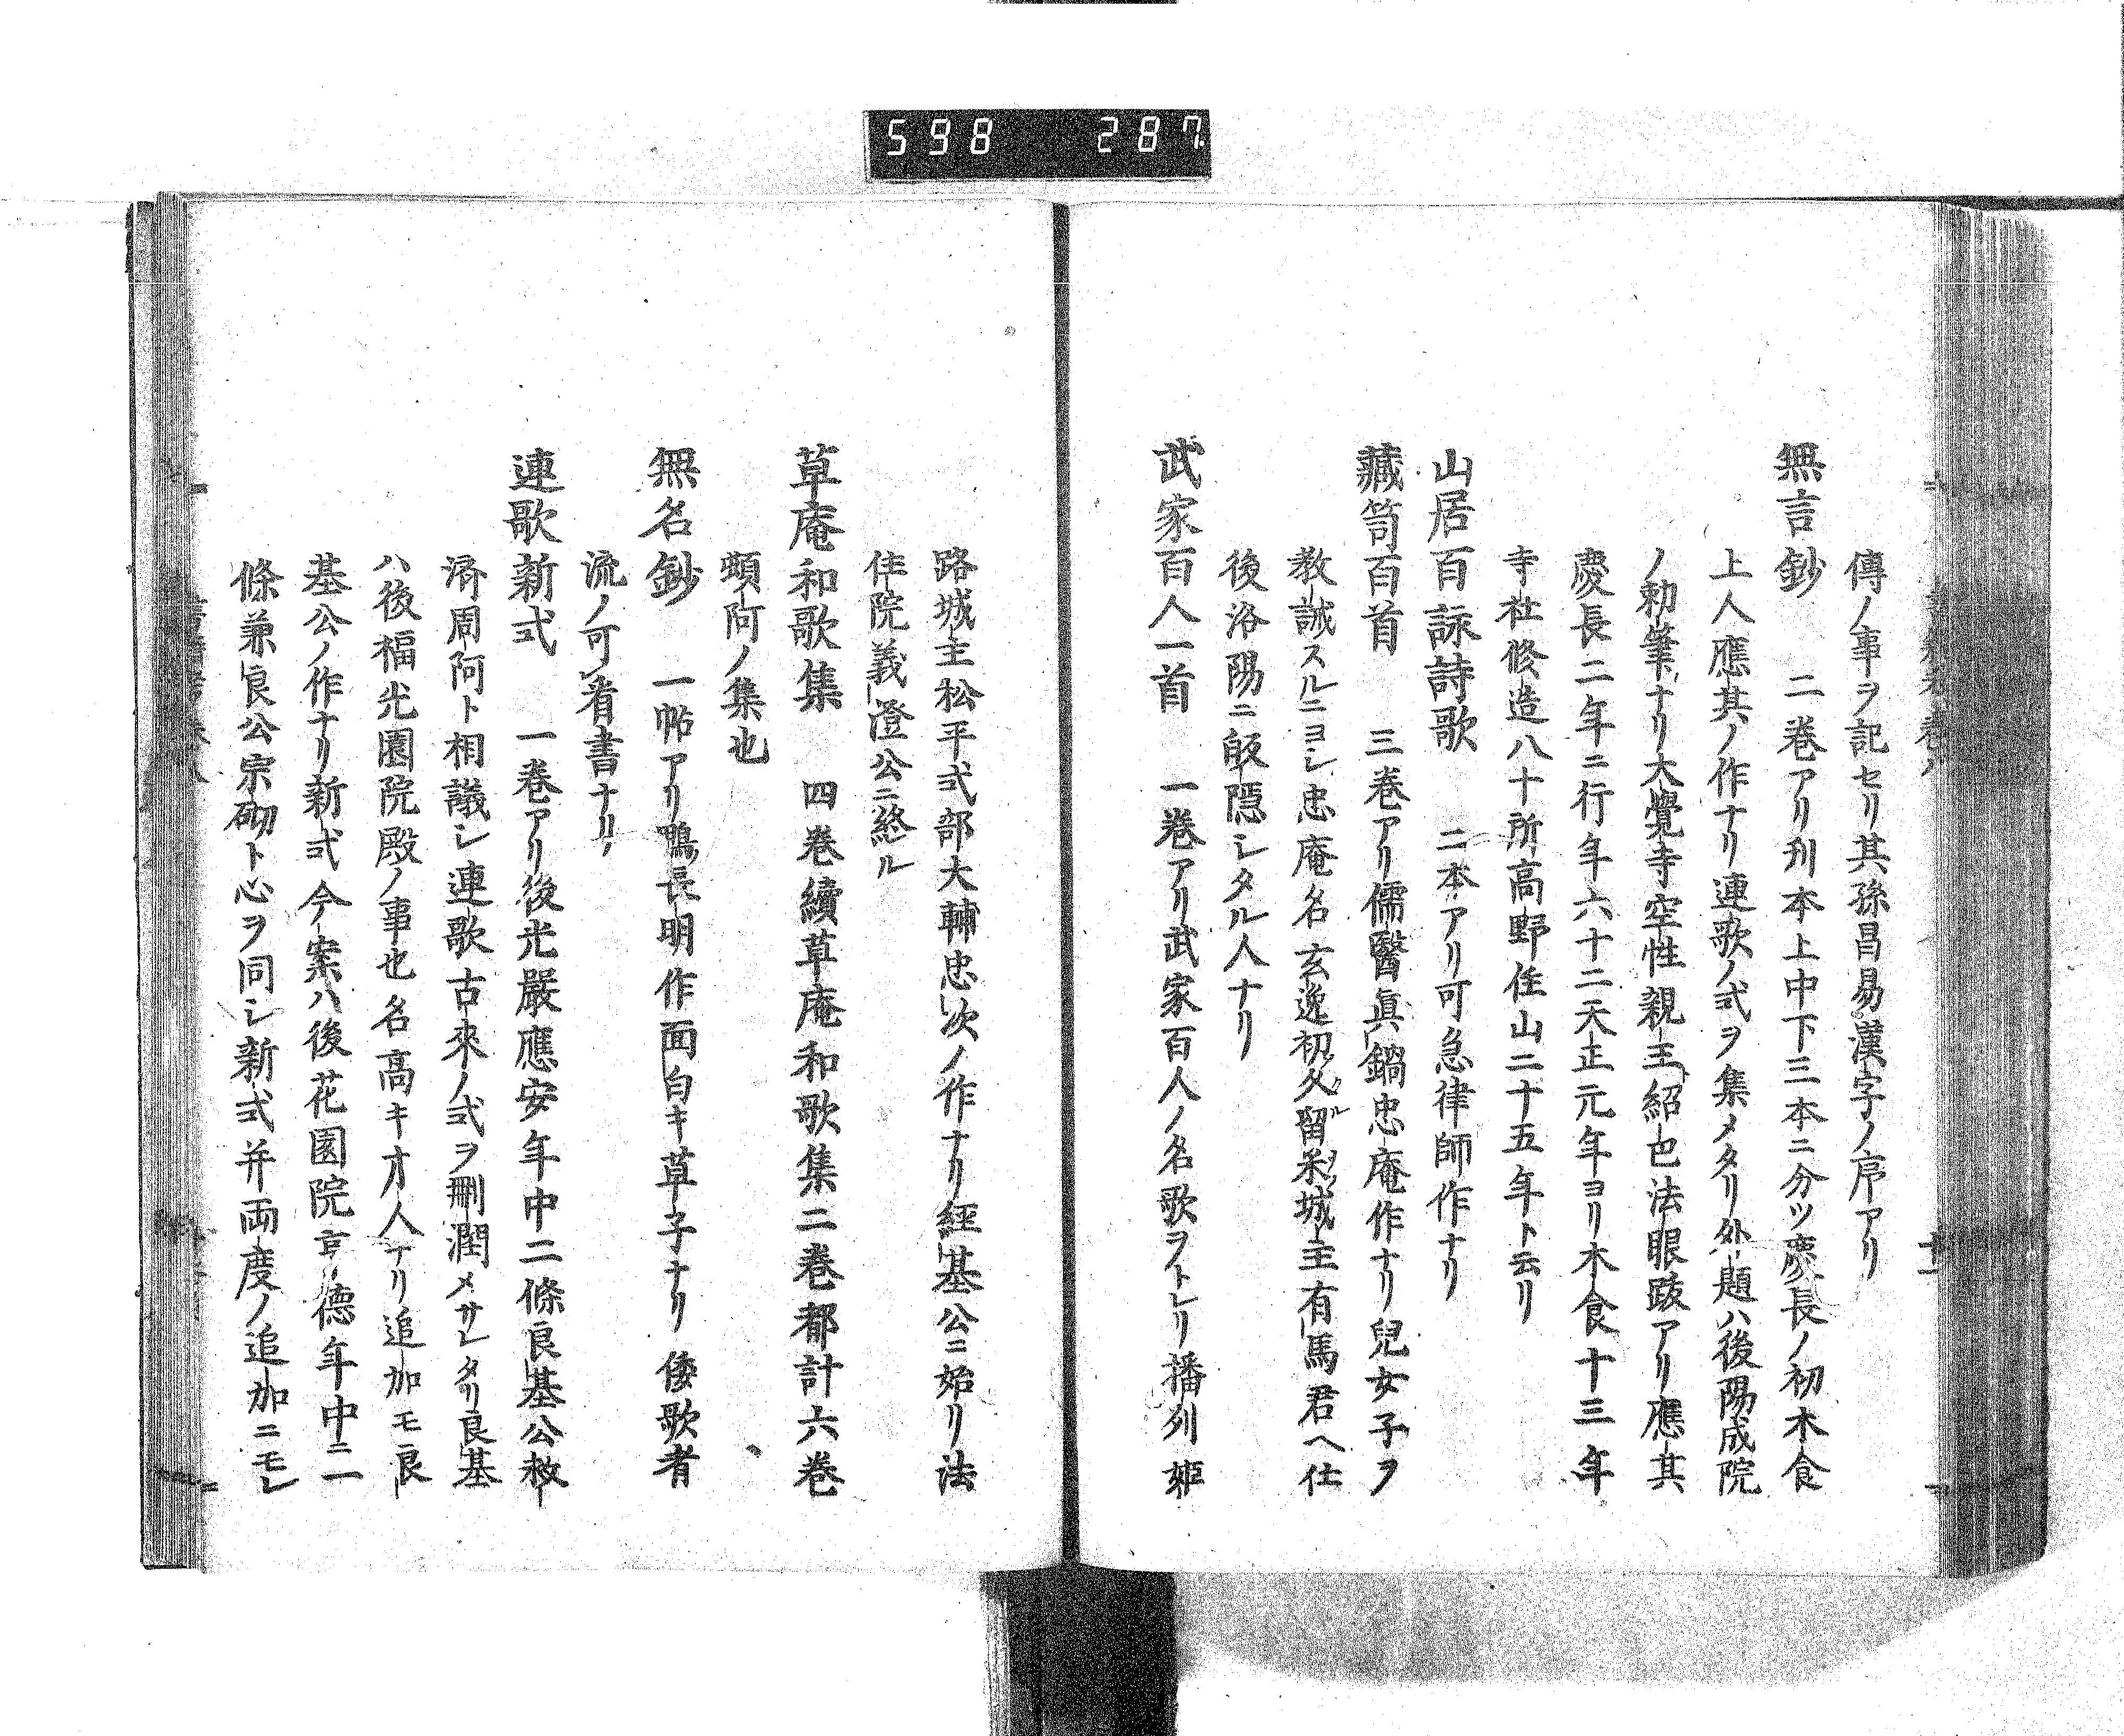 598 287
傳ノ事ヲ記セリ其孫昌易漢字ノ序アリ
無言鈔 二巻アリ刋本上中下三本ニ分ツ慶長ノ初木食
上人應其ノ作ナリ連歌ノ式ヲ集メタリ外題ハ後陽成院
ノ勅筆ナリ大覺寺空性親王紹巴法眼跋アリ應其
慶長二年ニ行年六十二天正元年ヨリ木食十三年
寺社修造八十所高野住山二十五年ト云リ
山居百詠詩歌 二本アリ可急律師作ナリ
藏笥百首 三巻アリ儒醫眞鍋忠庵作ナリ兒女子ヲ
教誡スルニヨレ忠庵名玄逸初久留米城主有馬君ヘ仕
後洛陽ニ皈隠シタル人ナリ
武家百人一首 一巻アリ武家百人ノ名歌ヲトレリ播列姫
路城主松平式部大輔忠次ノ作ナリ經基公ニ始リ法
住院義澄公ニ終ル
草庵和歌集 四巻續草庵和歌集二巻都計六巻
頓阿ノ集也
無名鈔 一帖アリ鴨長明作面白キ草子ナリ倭歌者
流ノ可看書ナリ
連歌新式 一巻アリ後光嚴應安年中二條良基公救
濟周阿ト相議シ連歌古來ノ式ヲ刪潤メサレタリ良基
ハ後福光園院殿ノ事也名高キ才人ナリ追加モ良
基公ノ作ナリ新式今案ハ後花園院享德年中ニ一
條兼良公宗砌ト心ヲ同シ新式并両度ノ追加ニモレ